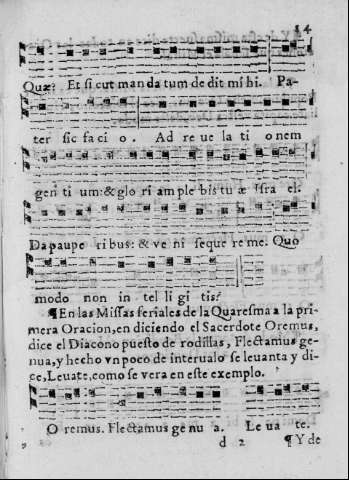 14
Quæ? Et si cut man da tum de dit mi hi. Pa-
ter sic fa ci o. Ad re ue la ti o nem
gen ti um: & glo ri am ple bis tu æ Isra el.
Da paupe ri bus: & ve ni seque re me. Quo
modo non in tel li gi tis?
¶En las Missas feriales de la Quaresma a la pri-
mera Oracion, en diciendo el Sacerdote Oremus,
dice el Diacono puesto de rodillas, Flectamus ge-
nua, y hecho vn poco de interualo se leuanta y di-
ce, Leuate, como se vera en este exemplo.
O remus. Flectamus ge nu a. Le ua te.
d 2 ¶Y de